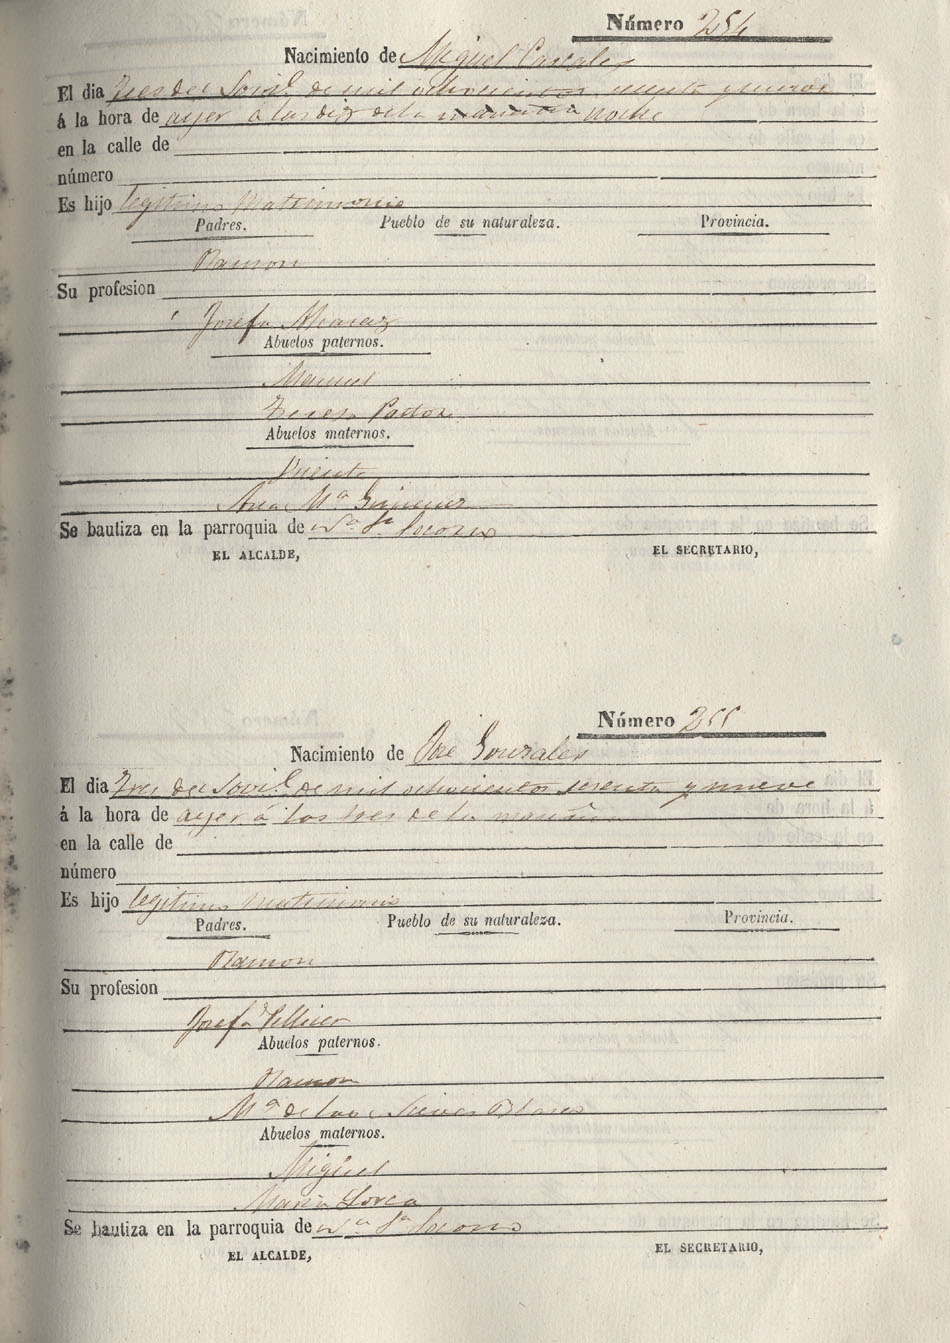 Número 254
Nacimiento de Miguel Pascales
El dia Tres de de mil ochocientos sesenta y nueve
á la hora de ayer á las diez de la mañana noche
en la calle de
número
Es hijo legitimo Matrimonio
Padres. Pueblo de su naturaleza. Provincia.
Ramon
Su profesion
Josefa Alvarez
Abuelos paternos.
Manuel
Teresa Pastor
Abuelos maternos.
Vicente
Ana Mª Gimenez
Se bautiza en la parroquia de
EL ALCALDE, EL SECRETARIO,
Número 255
Nacimiento de José Gonzalez
El dia Tres de de mil ochocientos sesenta y nueve
á la hora de ayer á las tres de la mañana
en la calle de
número
Es hijo legitimo matrimonio
Padres. Pueblo de su naturaleza. Provincia.
Ramon
Su profesion
Josefa Pellicer
Abuelos paternos.
Ramon
Mª de las Nieves Blasco
Abuelos maternos.
Miguel
Maria Lorca
Se bautiza en la parroquia de
EL ALCALDE, EL SECRETARIO,